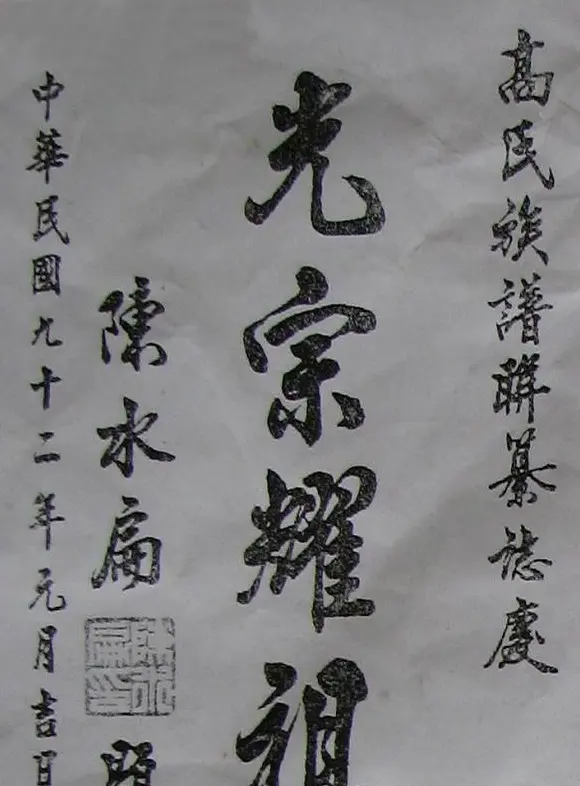 高氏族譜聯纂誌慶
光宗耀祖
陳水扁
中華民國九十二年元月吉日